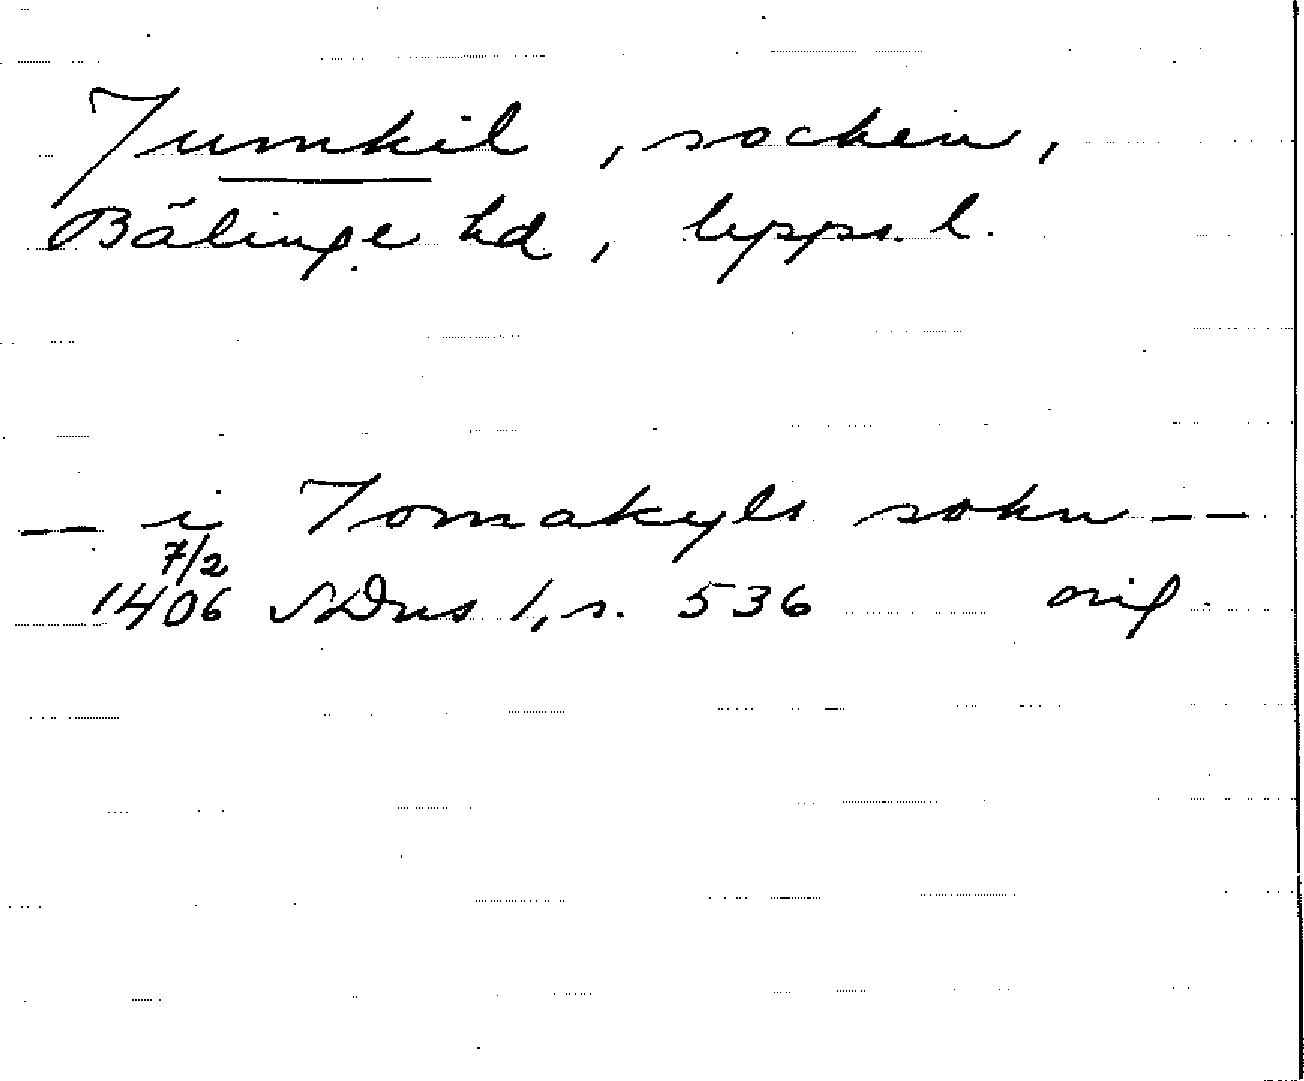 Jumkil, socken,
Bälinge hd, Upps. l.
— i Jomakyls sokn —
7/2
1406 SDns 1, s. 536 orig.